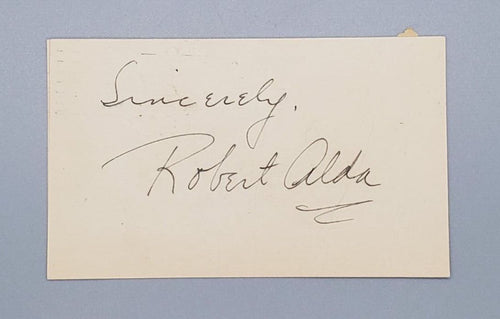 Sincerely,
Robert Alda